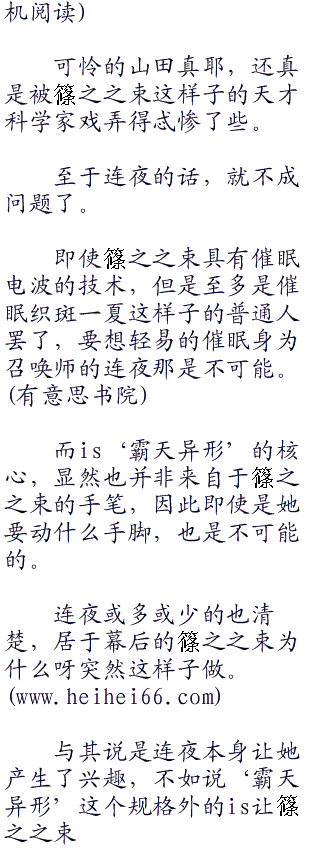 机阅读)
可怜的山田真耶，还真
是被篠之之束这样子的天才
科学家戏弄得忒惨了些。
至于连夜的话，就不成
问题了。
即使篠之之束具有催眠
电波的技术，但是至多是催
眠织斑一夏这样子的普通人
罢了，要想轻易的催眠身为
召唤师的连夜那是不可能。
(有意思书院)
而is‘霸天异形’的核
心，显然也并非来自于篠之
之束的手笔，因此即使是她
要动什么手脚，也是不可能
的。
连夜或多或少的也清
楚，居于幕后的篠之之束为
什么呀突然这样子做。
(www.heihei66.com)
与其说是连夜本身让她
产生了兴趣，不如说‘霸天
异形’这个规格外的is让篠
之之束